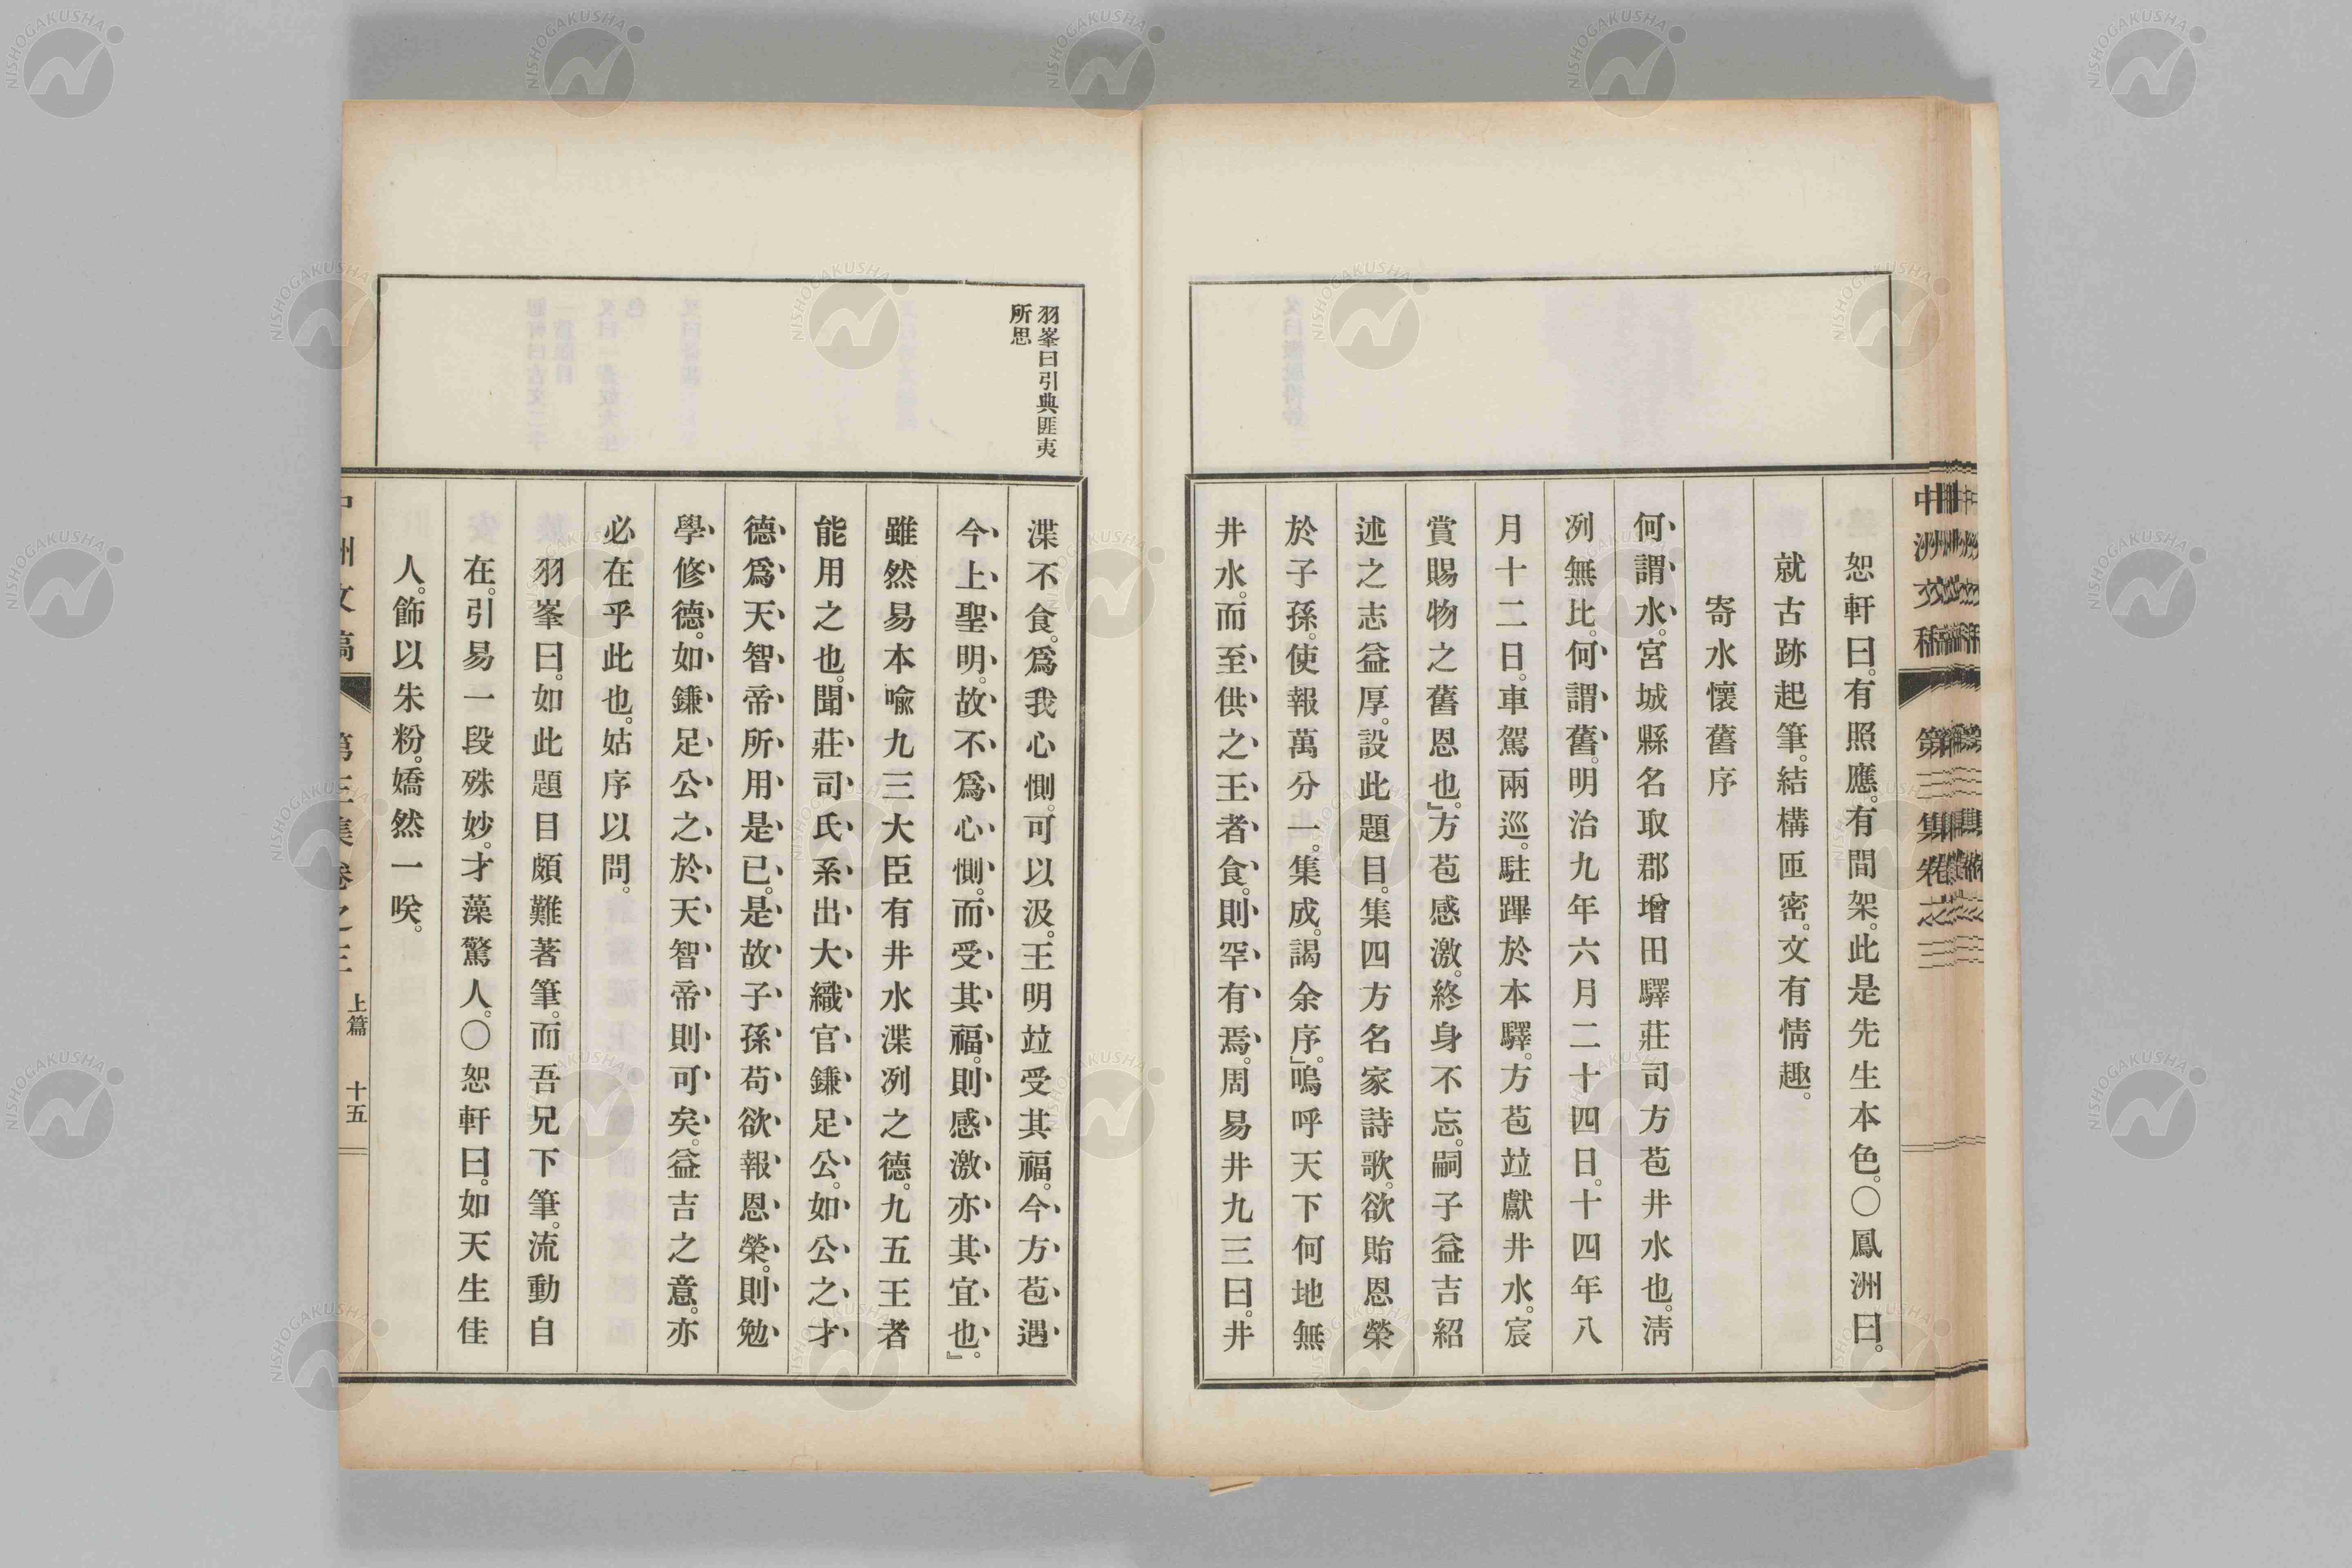 恕軒曰。有照應。有間架。此是先生本色。〇鳳洲曰。
就古跡起筆。結構匝密。文有情趣。
寄水懷舊序
何謂水。宮城縣名取郡增田驛莊司方苞井水也。淸
冽無比。何謂舊。明治九年六月二十四日。十四年八
月十二日。車駕兩巡。駐蹕於本驛。方苞竝獻井水。宸
賞賜物之舊恩也。』方苞感激。終身不忘。嗣子益吉紹
述之志益厚。設此題目。集四方名家詩歌。欲貽恩榮
於子孫。使報萬分一。集成。謁余序。』嗚呼天下何地無
井水。而至供之王者食。則罕有焉。周易井九三曰。井
羽峯曰引典匪夷
所思
渫不食。爲我心惻。可以汲。王明竝受其福。今方苞遇
今上聖明。故不爲心惻。而受其福。則感激亦其宜也。』
雖然易本喩九三大臣有井水渫冽之德。九五王者
能用之也。聞莊司氏系出大織官鎌足公。如公之才
德爲天智帝所用是已。是故子孫苟欲報恩榮。則勉
學修德。如鎌足公之於天智帝則可矣。益吉之意。亦
必在乎此也。姑序以問。
羽峯曰。如此題目頗難著筆。而吾兄下筆。流動自
在。引易一段殊妙。才藻驚人。〇恕軒曰。如天生佳
人。飾以朱粉。嬌然一咲。
中洲文稿 第三集卷之三 上篇 十五